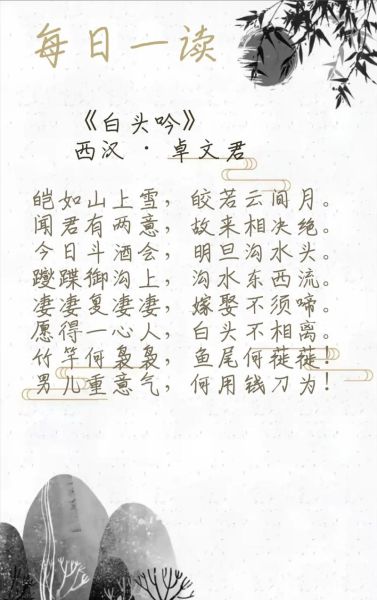 每日一读
《白头吟》
西汉 · 卓文君
皑如山上雪，皎若云间月。
闻君有两意，故来相决绝。
今日斗酒会，明旦沟水头。
躞蹀御沟上，沟水东西流。
凄凄复凄凄，嫁娶不须啼。
愿得一心人，白头不相离。
竹竿何袅袅，鱼尾何簁簁！
男儿重意气，何用钱刀为！